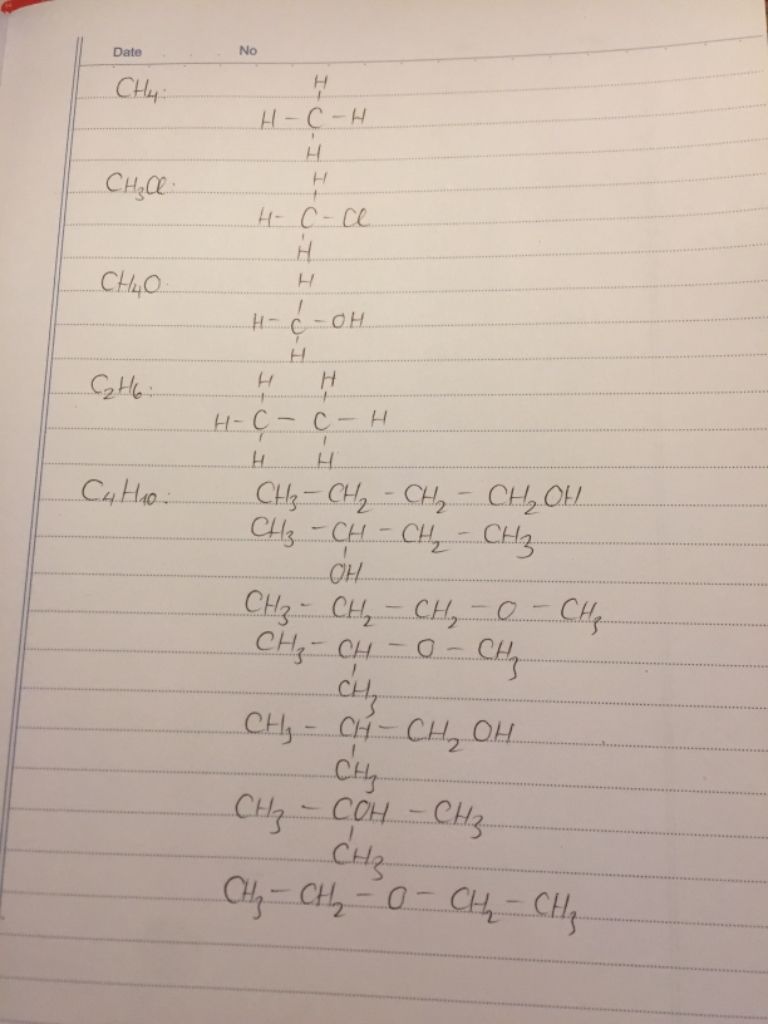 Date No
CH4: H
H - C - H
H
CH3Cl: H
H - C - Cl
H
CH4O: H
H - C - OH
H
C2H6: H H
H - C - C - H
H H
C4H10: CH3 - CH2 - CH2 - CH2OH
CH3 - CH - CH2 - CH3
OH
CH3 - CH2 - CH2 - O - CH3
CH3 - CH - O - CH3
CH3
CH3 - CH - CH2OH
CH3
CH3 - COH - CH3
CH3
CH3 - CH2 - O - CH2 - CH3